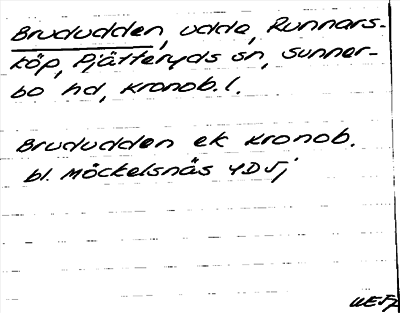 Brududden, udde, Runnars-
köp, Pjätteryds sn, Sunner-
bo hd, Kronob. l.
Brududden ek Kronob.
bl. Möckelsnäs 4D5j